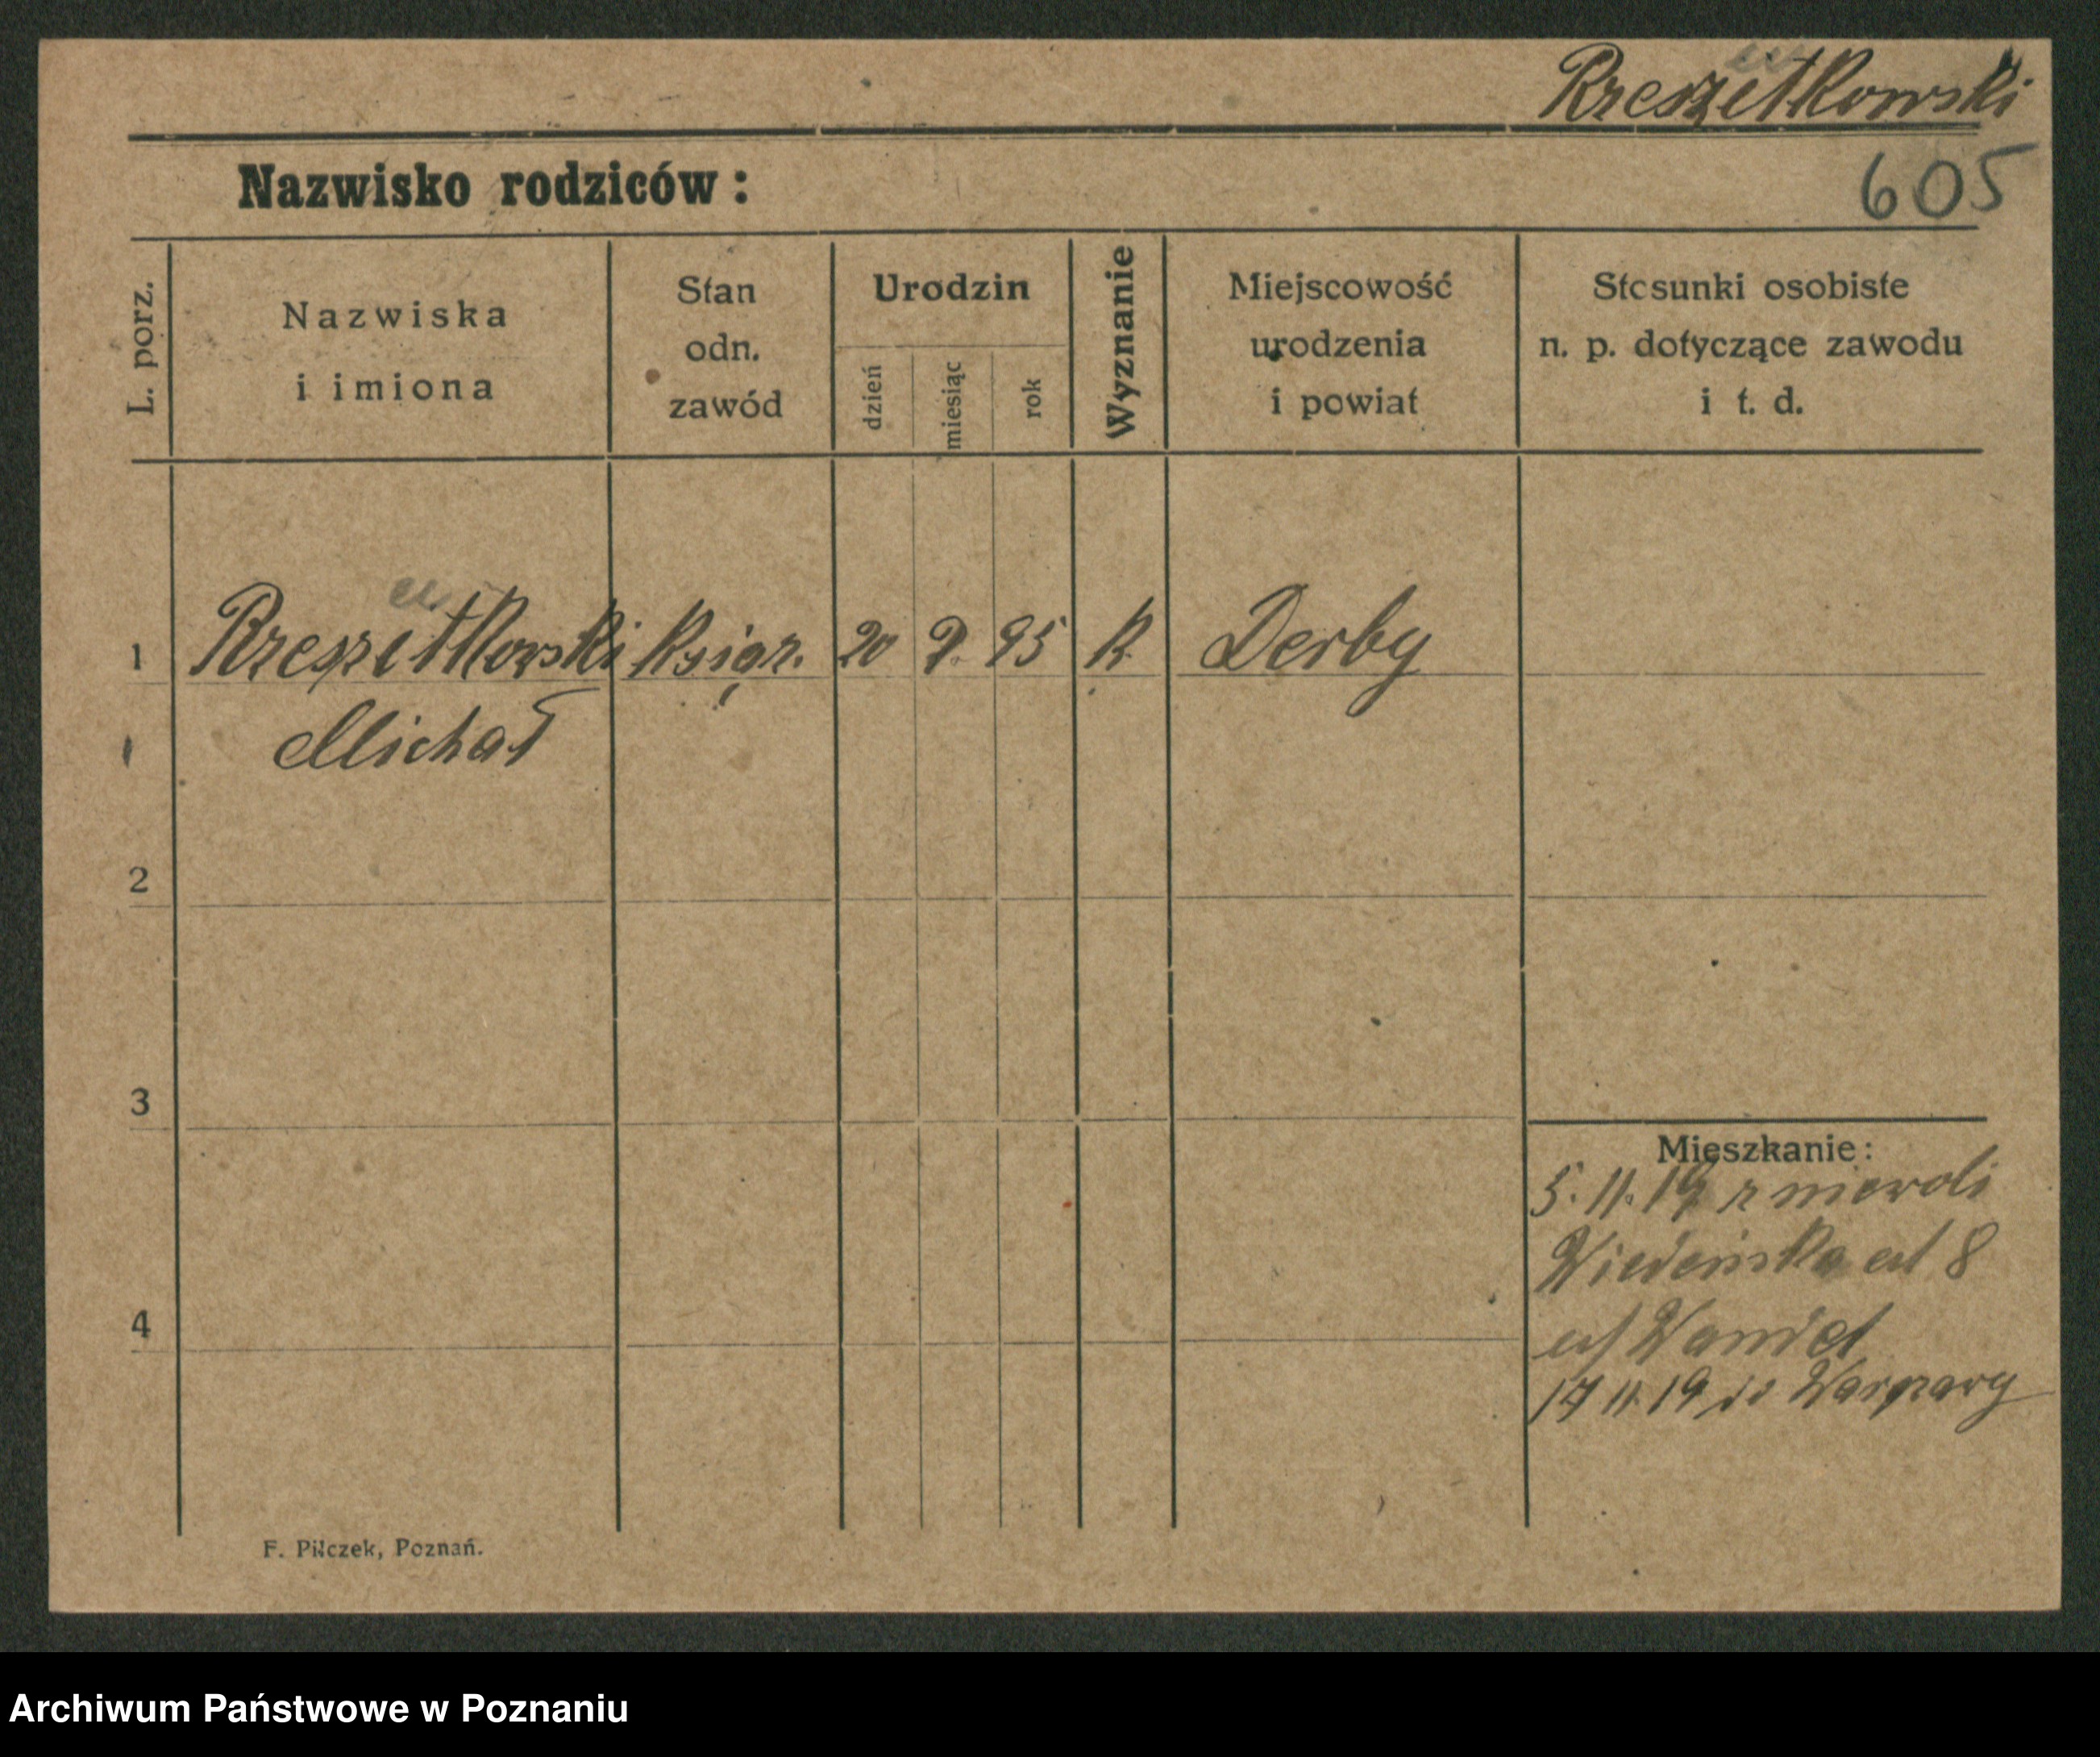 Rzeszetkowski
605
Nazwisko rodziców:
L. porz.
Nazwiska
i imiona
Stan
odn.
zawód
Urodzin
dzień
miesiąc
rok
Wyznanie
Miejscowość
urodzenia
i powiat
Stosunki osobiste
n. p. dotyczące zawodu
i t. d.
1 Rzeszetkowski Księg. 20 9. 95 k. Derby
Michał
2
3
Mieszkanie:
5. 11. 19 z niewoli
Wiedeńska 8
4
17 11. 19 do Warszawy
F. Pilczek, Poznań.
Archiwum Państwowe w Poznaniu